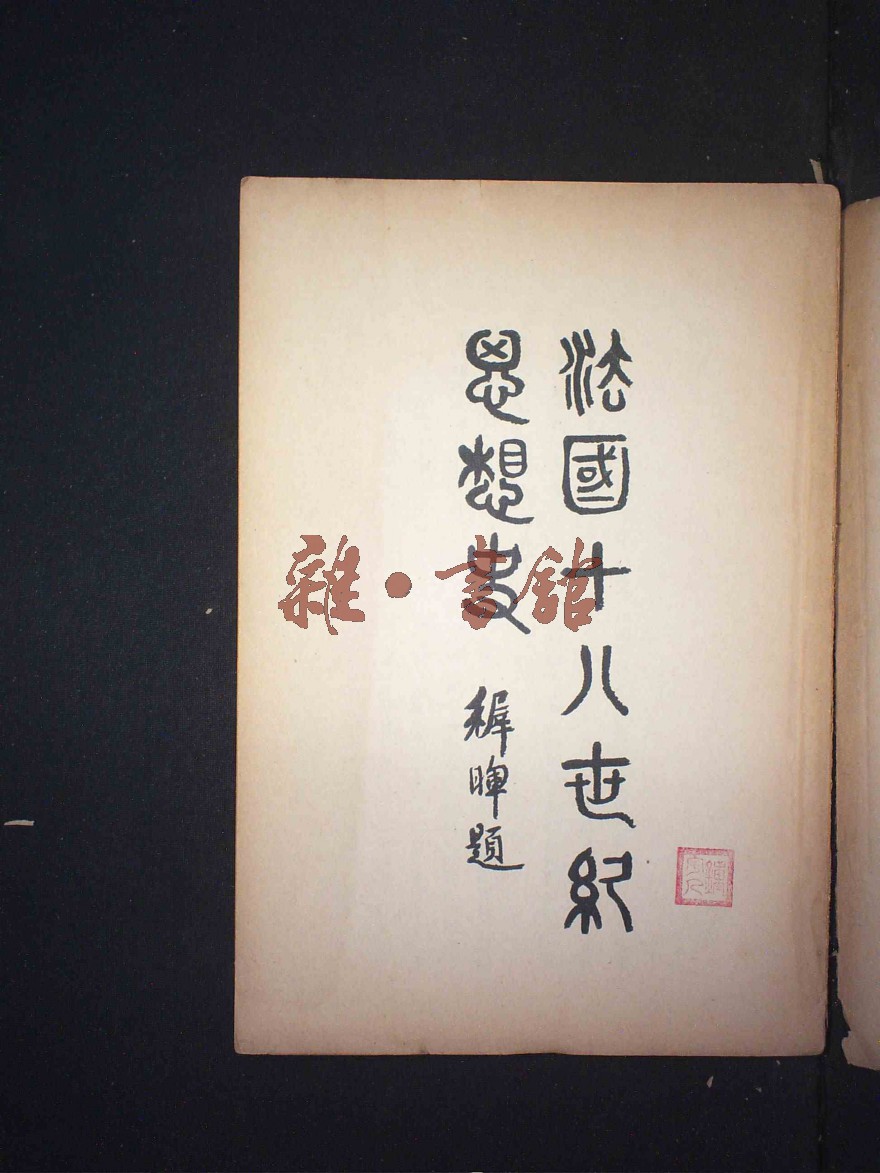 法國十八世紀
思想史
稺暉題
雜·書館